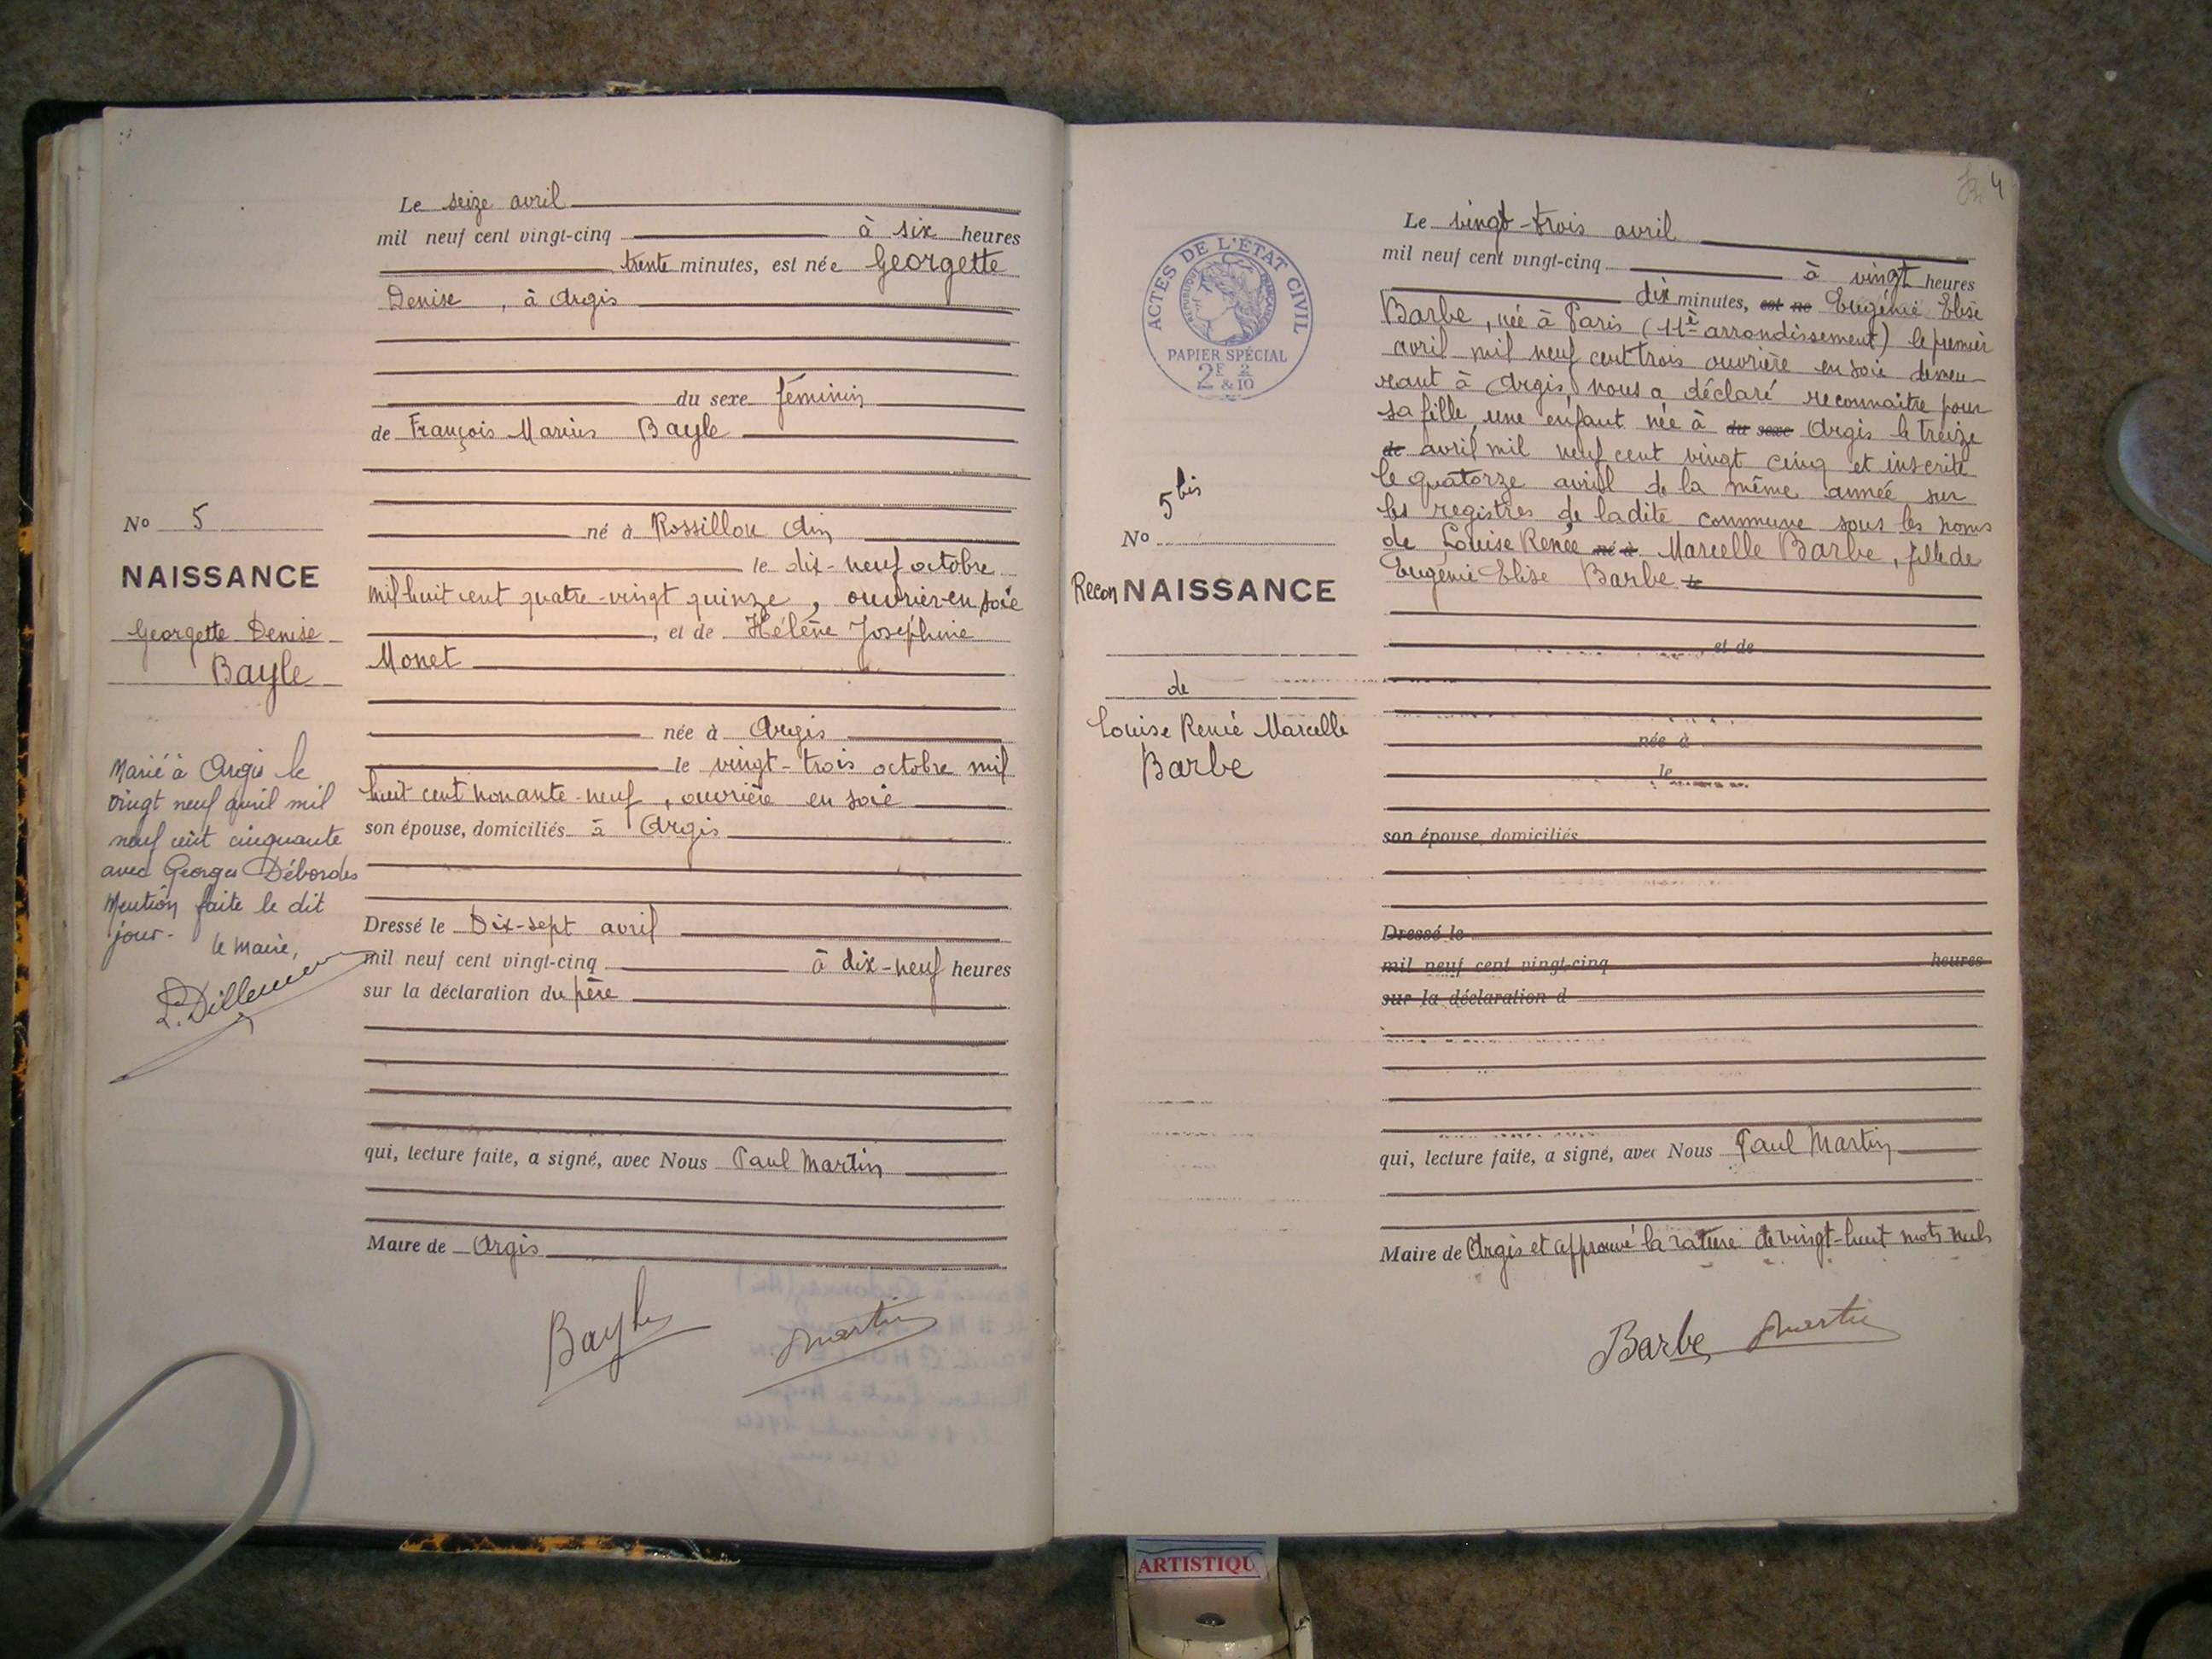 Le seize avril
mil neuf cent vingt-cinq à six heures
trente minutes, est née Georgette
Denise, à Argis
du sexe féminin
de François Marius Bayle
né à Rossillon Ain
le dix-neuf octobre
mil huit cent quatre-vingt quinze, ouvrier en soie
, et de Hélène Joséphine
Monet
née à Argis
le vingt-trois octobre mil
huit cent nonante-neuf, ouvrière en soie
son épouse, domiciliés à Argis
Dressé le Dix-sept avril
mil neuf cent vingt-cinq à dix-neuf heures
sur la déclaration du père
qui, lecture faite, a signé, avec Nous Paul Martin
Maire de Argis
Bayle Martin
No 5
NAISSANCE
Georgette Denise
Bayle
Marié à Argis le
vingt neuf avril mil
neuf cent cinquante
avec Georges Débordes
Mention faite le dit
jour.
le maire,
4
ACTES DE L'ÉTAT CIVIL
RÉPUBLIQUE FRANÇAISE
PAPIER SPÉCIAL
2F 2/10
& 10
No 5 bis
ReconNAISSANCE
de
Louise Renée Marcelle
Barbe
Le vingt-trois avril
mil neuf cent vingt-cinq à vingt heures
dix minutes, est né Eugénie Elise
Barbe, née à Paris (11è arrondissement) le premier
avril mil neuf cent trois ouvrière en soie demeu
rant à Argis, nous a déclaré reconnaitre pour
sa fille, une enfant née à du sexe Argis le treize
de avril mil neuf cent vingt cinq et inscrite
le quatorze avril de la même année sur
les registres de ladite commune sous les noms
de Louise Renée né à Marcelle Barbe, fille de
Eugénie Elise Barbe le
, et de
née à
le
son épouse, domiciliés
Dressé le
mil neuf cent vingt-cinq heures
sur la déclaration d
qui, lecture faite, a signé, avec Nous Paul Martin
Maire de Argis et approuvé la rature de vingt-huit mots nuls
Barbe Martin
ARTISTIQU